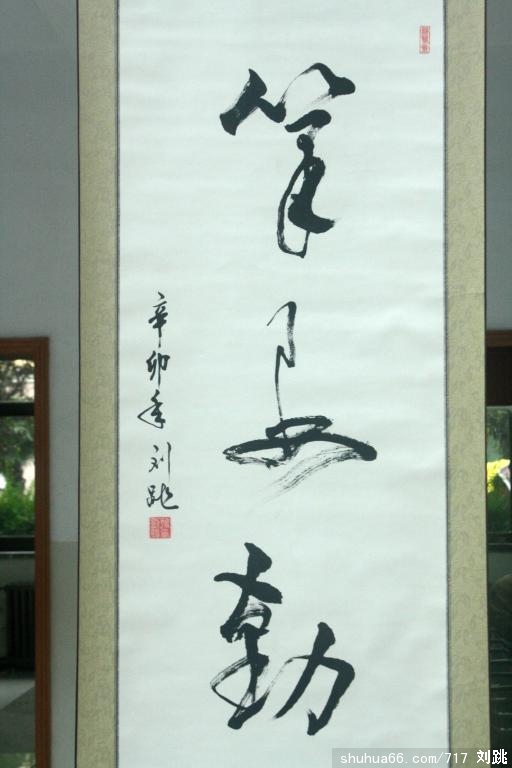 筆
勤
辛卯年 刘跳
shuhua66. com/717 刘跳